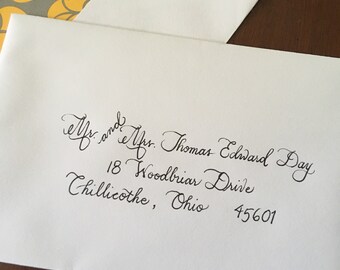 Mr. and Mrs. Thomas Edward Day
18 Woodbriar Drive
Chillicothe, Ohio 45601